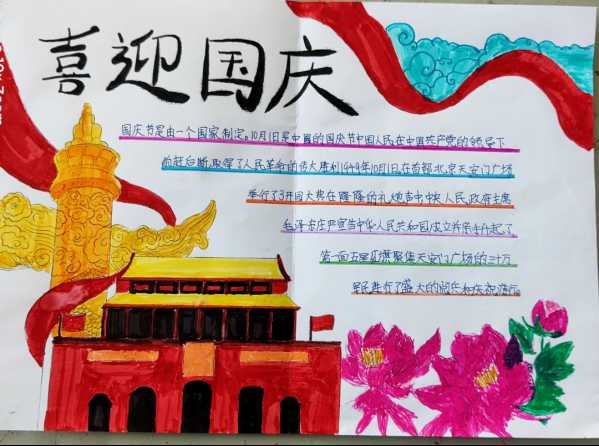 喜迎国庆
国庆节是由一个国家制定。10月1日是中国的国庆节中国人民,在中国共产党的领导下
前赴后断,取得了人民革命的伟大胜利1949年10月1日,在首都北京天安门广场
举行了开国大典在隆隆的礼炮声中中央人民政府主席
毛泽东庄严宣告中华人民共和国成立并亲手升起了
第一面五星红旗聚集天安门广场的三十万
军民进行了盛大的阅兵和庆祝游行。